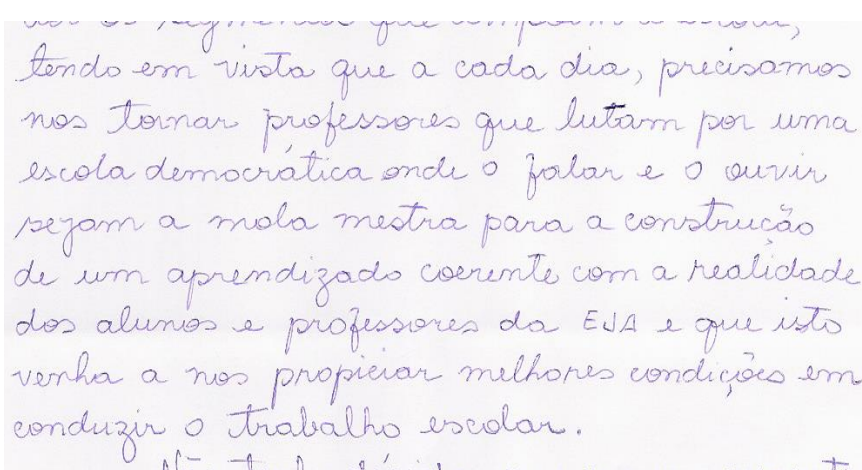 os segmentos que compõem a escola,
tendo em vista que a cada dia, precisamos
nos tornar professores que lutam por uma
escola democrática onde o falar e o ouvir
sejam a mola mestra para a construção
de um aprendizado coerente com a realidade
dos alunos e professores da EJA e que isto
venha a nos propiciar melhores condições em
conduzir o trabalho escolar.